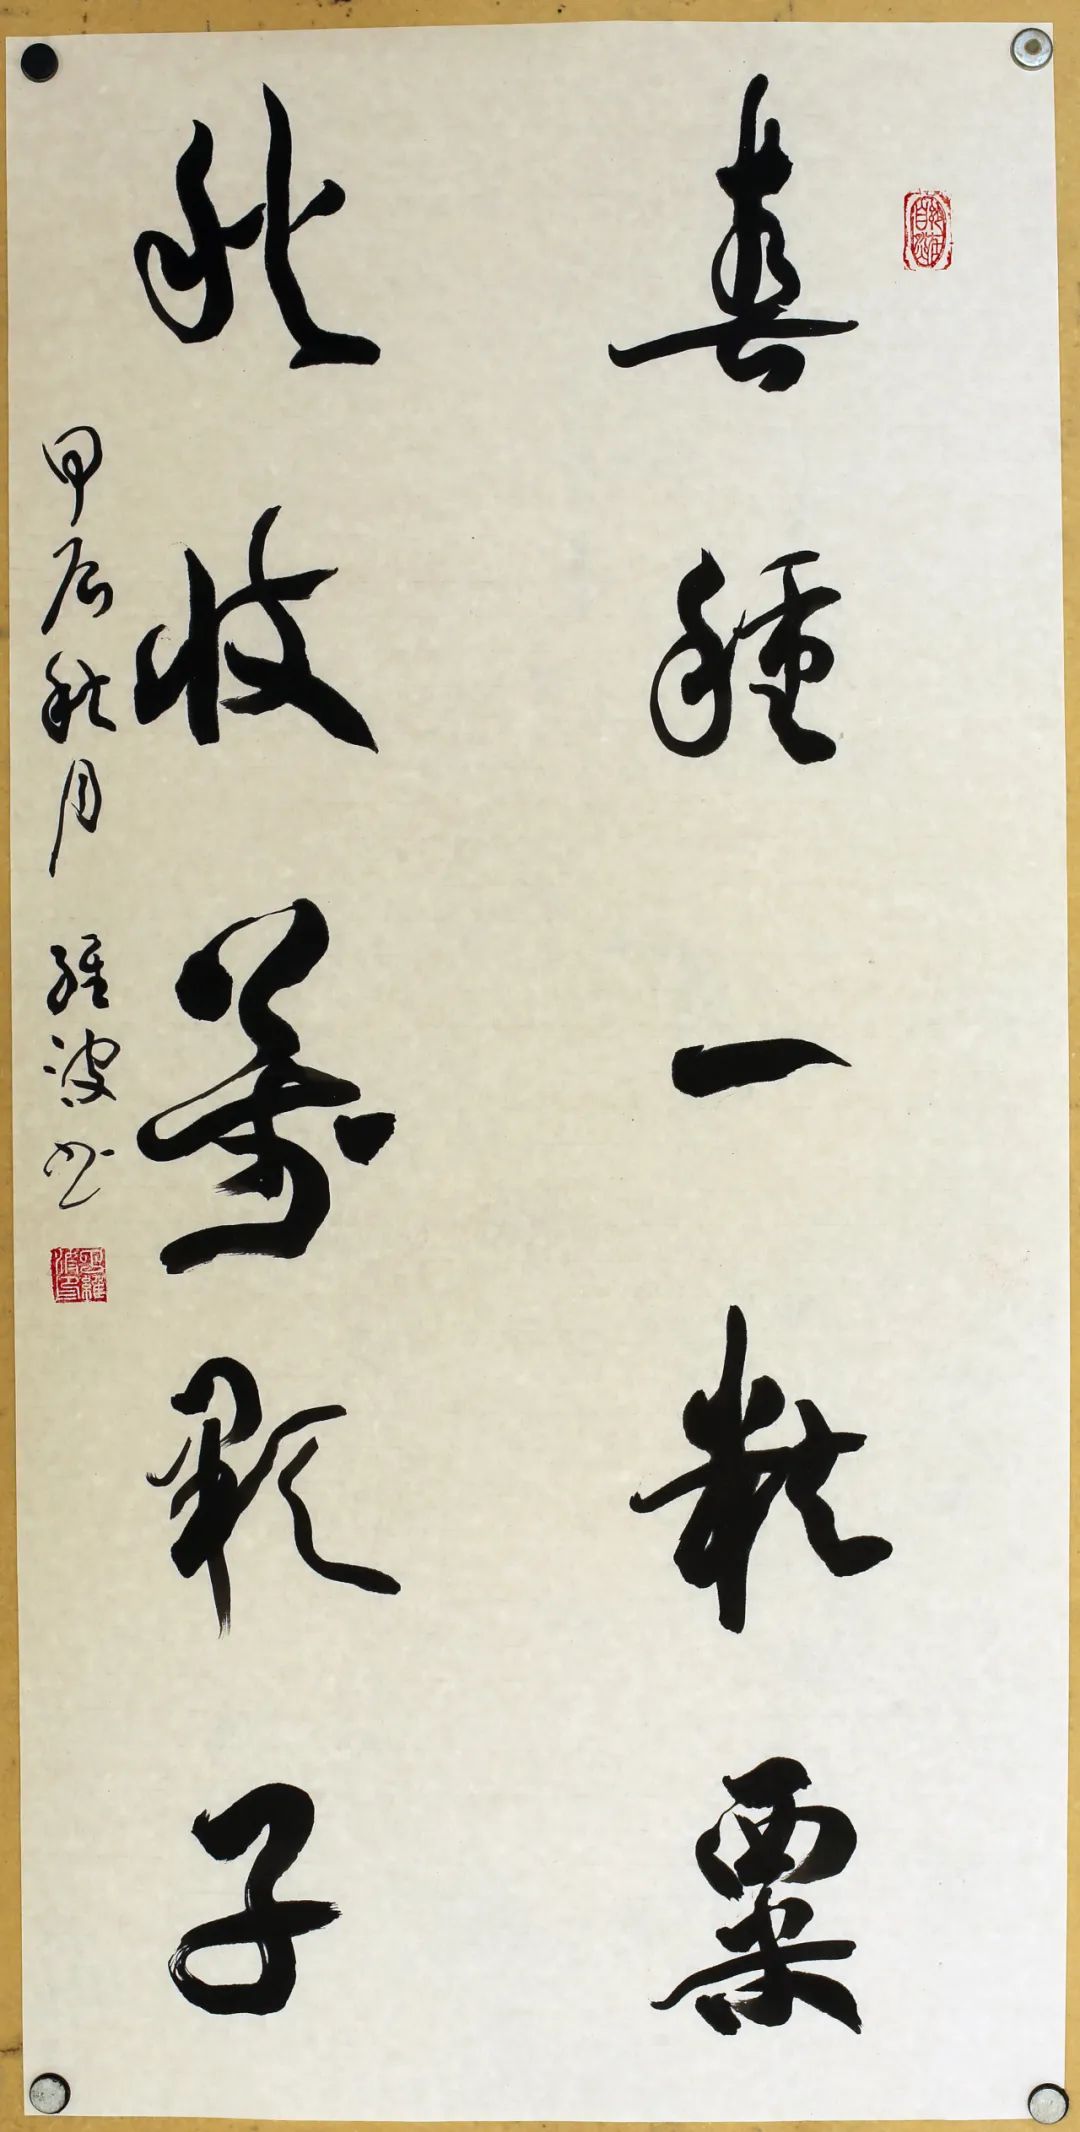 春種一粒粟
秋收萬顆子
甲辰秋月 維波书